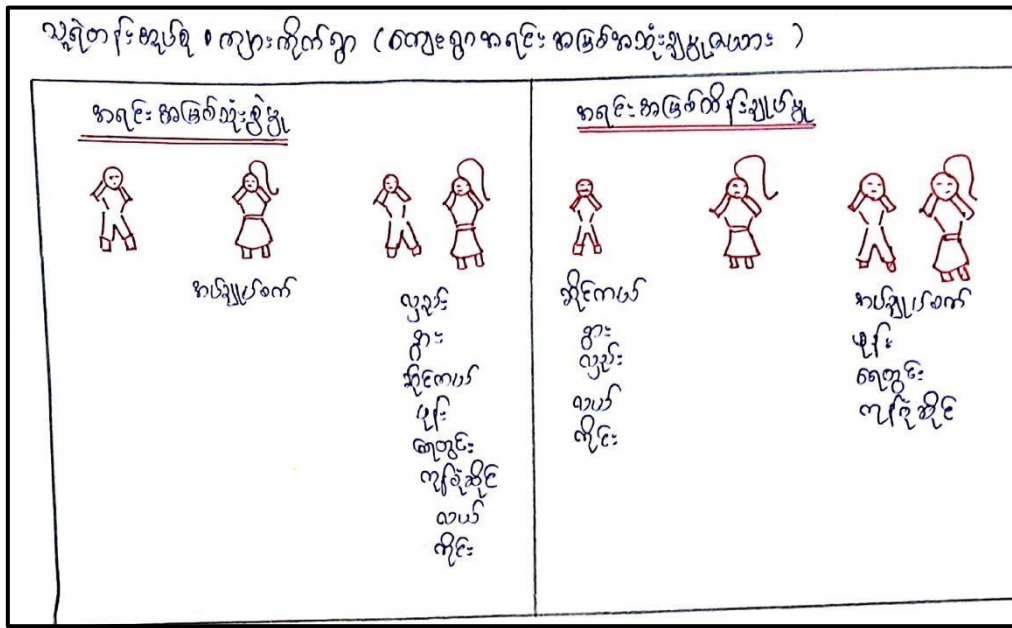 သူရဲတန်းအုပ်စု ၊ ကျားကိုက်ရွာ (ကျေးရွာအရင်းအမြစ်အသုံးချမှုဇယား)
အရင်းအမြစ်သုံးစွဲမှု
အပ်ချုပ်စက်
လှည်း
နွား
ဆိုင်ကယ်
ဖုန်း
ရေတွင်း
ကုန်စုံဆိုင်
လယ်
ကိုင်း
အရင်းအမြစ်ထိန်းချုပ်မှု
ဆိုင်ကယ်
နွား
လှည်း
လယ်
ကိုင်း
အပ်ချုပ်စက်
ဖုန်း
ရေတွင်း
ကုန်စုံဆိုင်